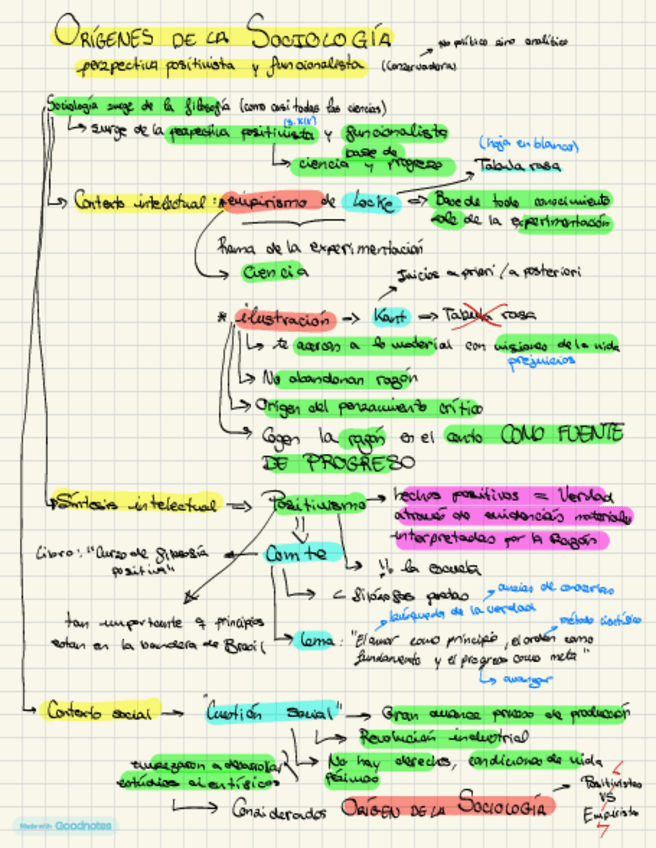 ORÍGENES DE LA SOCIOLOGÍA
No político sino analítico
perspectiva positivista y funcionalista (conservadora)
Sociología surge de la filosofía (como casi todas las ciencias)
(s.XIX)
surge de la perspectiva positivista y funcionalista
(hoja en blanco)
base de
ciencia y progreso
Tabula rasa
Contexto intelectual: *empirismo de Locke => Base de todo conocimiento
sale de la experimentación
Rama de la experimentación
Ciencia
Juicios a priori / a posteriori
* ilustración -> Kant -> Tabula rasa
te acercas a lo material con visiones de la vida
prejuicios
No abandonan razón
Origen del pensamiento crítico
Cogen la razón en el centro COMO FUENTE
DE PROGRESO
Síntesis intelectual => Positivismo -> hechos positivos = Verdad
a través de evidencias materiales
interpretadas por la Razón
Libro: "Curso de filosofía
positiva"
Comte
la escuela
ansias de conocerlas
búsqueda de la verdad
método científico
tan importante q principios
estan en la bandera de Brasil
lema: "El amor como principio, el orden como
fundamento y el progreso como meta"
avanzar
Contexto social -> "Cuestión social" -> Gran avance proceso de producción
Revolución industrial
empezaron a desarrollar
estudios científicos
No hay derechos, condiciones de vida
pésimas
Considerados ORÍGEN DE LA SOCIOLOGÍA
Positivistas
VS
Empirista
Made with Goodnotes